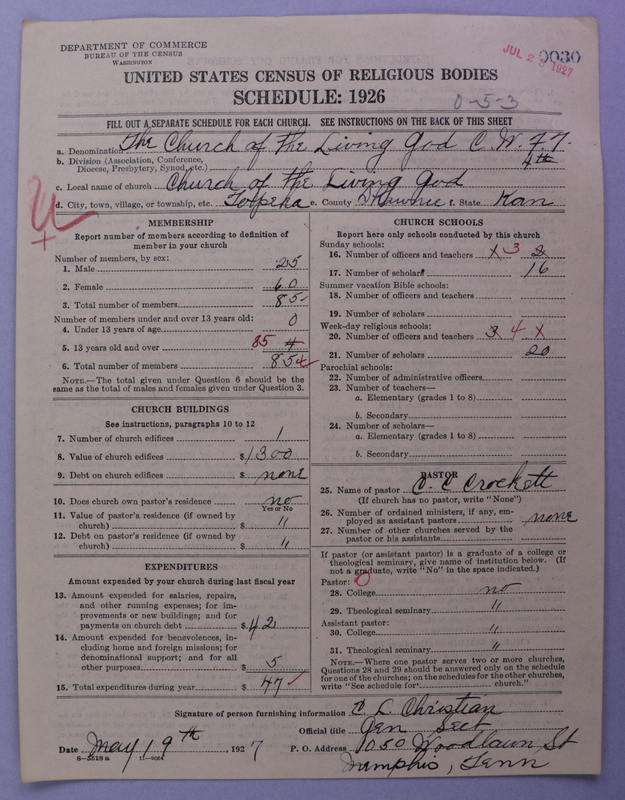 DEPARTMENT OF COMMERCE
BUREAU OF THE CENSUS
WASHINGTON
JUL 2 1927
0030
UNITED STATES CENSUS OF RELIGIOUS BODIES
SCHEDULE: 1926
0-5-3
FILL OUT A SEPARATE SCHEDULE FOR EACH CHURCH. SEE INSTRUCTIONS ON THE BACK OF THIS SHEET
a. Denomination The Church of the Living God C. W. F. F.
b. Division (Association, Conference, Diocese, Presbytery, Synod, etc.) 4th
c. Local name of church Church of the Living God
d. City, town, village, or township, etc. Topeka e. County Shawnie f. State Kan
MEMBERSHIP
Report number of members according to definition of
member in your church
Number of members, by sex:
1. Male 25
2. Female 60
3. Total number of members 85
Number of members under and over 13 years old:
4. Under 13 years of age 0
5. 13 years old and over 85
6. Total number of members 85
NOTE.—The total given under Question 6 should be
same as the total of males and females given under Question 3.
CHURCH BUILDINGS
See instructions, paragraphs 10 to 12
7. Number of church edifices 1
8. Value of church edifices $1300
9. Debt on church edifices $ none
10. Does church own pastor's residence no
Yes or No
11. Value of pastor's residence (if owned by
church) $ "
12. Debt on pastor's residence (if owned by
church) $ "
EXPENDITURES
Amount expended by your church during last fiscal year
13. Amount expended for salaries, repairs,
and other running expenses; for im-
provements or new buildings; and for
payments on church debt $ 42
14. Amount expended for benevolences, in-
cluding home and foreign missions; for
denominational support; and for all
other purposes $ 5
15. Total expenditures during year $ 47
CHURCH SCHOOLS
Report here only schools conducted by this church
Sunday schools:
16. Number of officers and teachers 3 2
17. Number of scholars 16
Summer vacation Bible schools:
18. Number of officers and teachers
19. Number of scholars
Week-day religious schools:
20. Number of officers and teachers 3 4
21. Number of scholars 20
Parochial schools:
22. Number of administrative officers
23. Number of teachers—
a. Elementary (grades 1 to 8)
b. Secondary
24. Number of scholars—
a. Elementary (grades 1 to 8)
b. Secondary
PASTOR
25. Name of pastor C. C Crockett
(If church has no pastor, write "None")
26. Number of ordained ministers, if any, em-
ployed as assistant pastors none
27. Number of other churches served by the
pastor or his assistants
If pastor (or assistant pastor) is a graduate of a college or
theological seminary, give name of institution below. (If
not a graduate, write "No" in the space indicated.)
Pastor: 0
28. College no
29. Theological seminary "
Assistant pastor:
30. College "
31. Theological seminary "
NOTE.—Where one pastor serves two or more churches,
Questions 28 and 29 should be answered only on the schedule
for one of the churches; on the schedules for the other churches,
write "See schedule for church."
Signature of person furnishing information C L Christian
Official title Gen Sect
Date May 19th, 1927 P. O. Address 1050 Woodlawn St
8—5518 a 11—9064
Memphis, Tenn